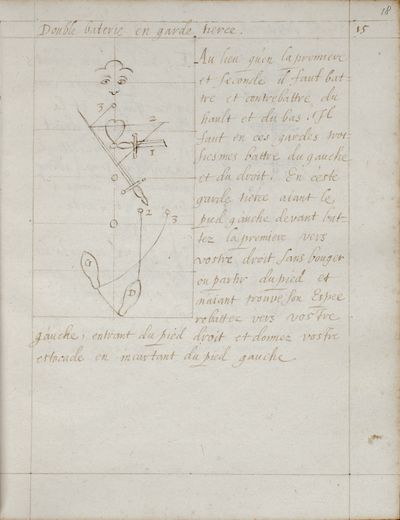 18
Double baterie en garde tierce.
15
Au lieu qu'en la premiere
et seconde il faut bat-
tre et contrebattre du
hault et du bas. Il
faut en ces gardes troi-
siesmes battre du gauche
et du droit. En ceste
garde tierce aiant le
pied gauche devant bat-
tez la premiere vers
vostre droit sans bouger
ou partir du pied et
n'aiant trouvé son Espee
rebattez vers vostre
gauche, entrant du pied droit et donnez vostre
estocade en incartant du pied gauche
3
2
1
2
3
G
D